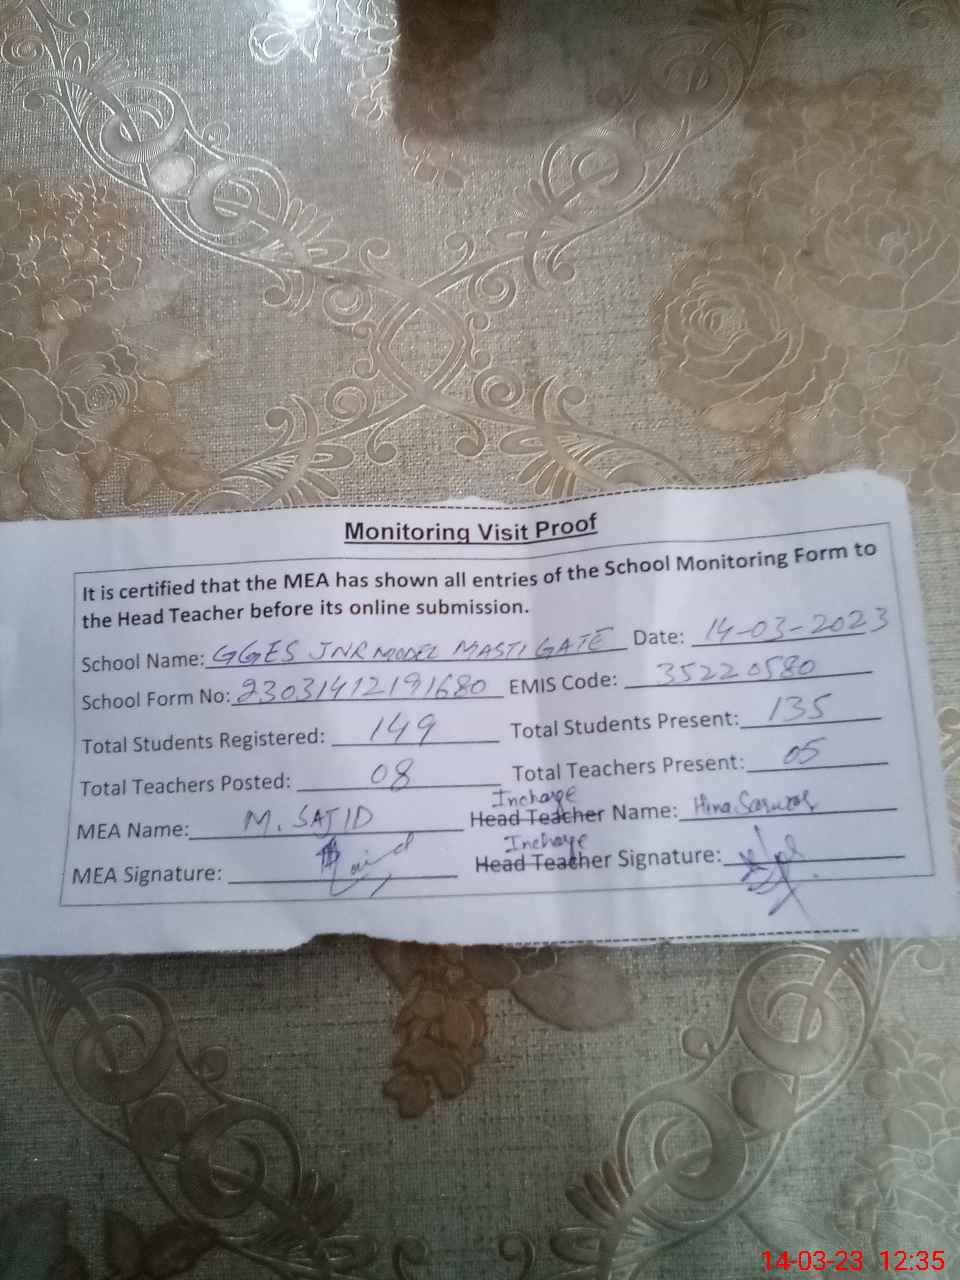 Monitoring Visit Proof
It is certified that the MEA has shown all entries of the School Monitoring Form to
the Head Teacher before its online submission.
School Name: GGES JNR MODEL MASTI GATE Date: 14-03-2023
School Form No: 23031412191680 EMIS Code: 35220580
Total Students Registered: 149 Total Students Present: 135
Total Teachers Posted: 08 Total Teachers Present: 05
Incharge
MEA Name: M. SAJID Head Teacher Name: Hina Sarwar
Incharge
MEA Signature: Head Teacher Signature:
14-03-23 12:35